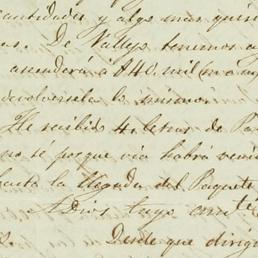 cantidades y algo mas quin
as. De Vallejo tenemos a
ascenderá á $40. mil ó a
devolverselas lo mismo.
He recibido 4. letras de Pa
no sé porque via habrá veni
hasta la llegada del Paquete
Adios tuyo const.te
Desde que dirigi